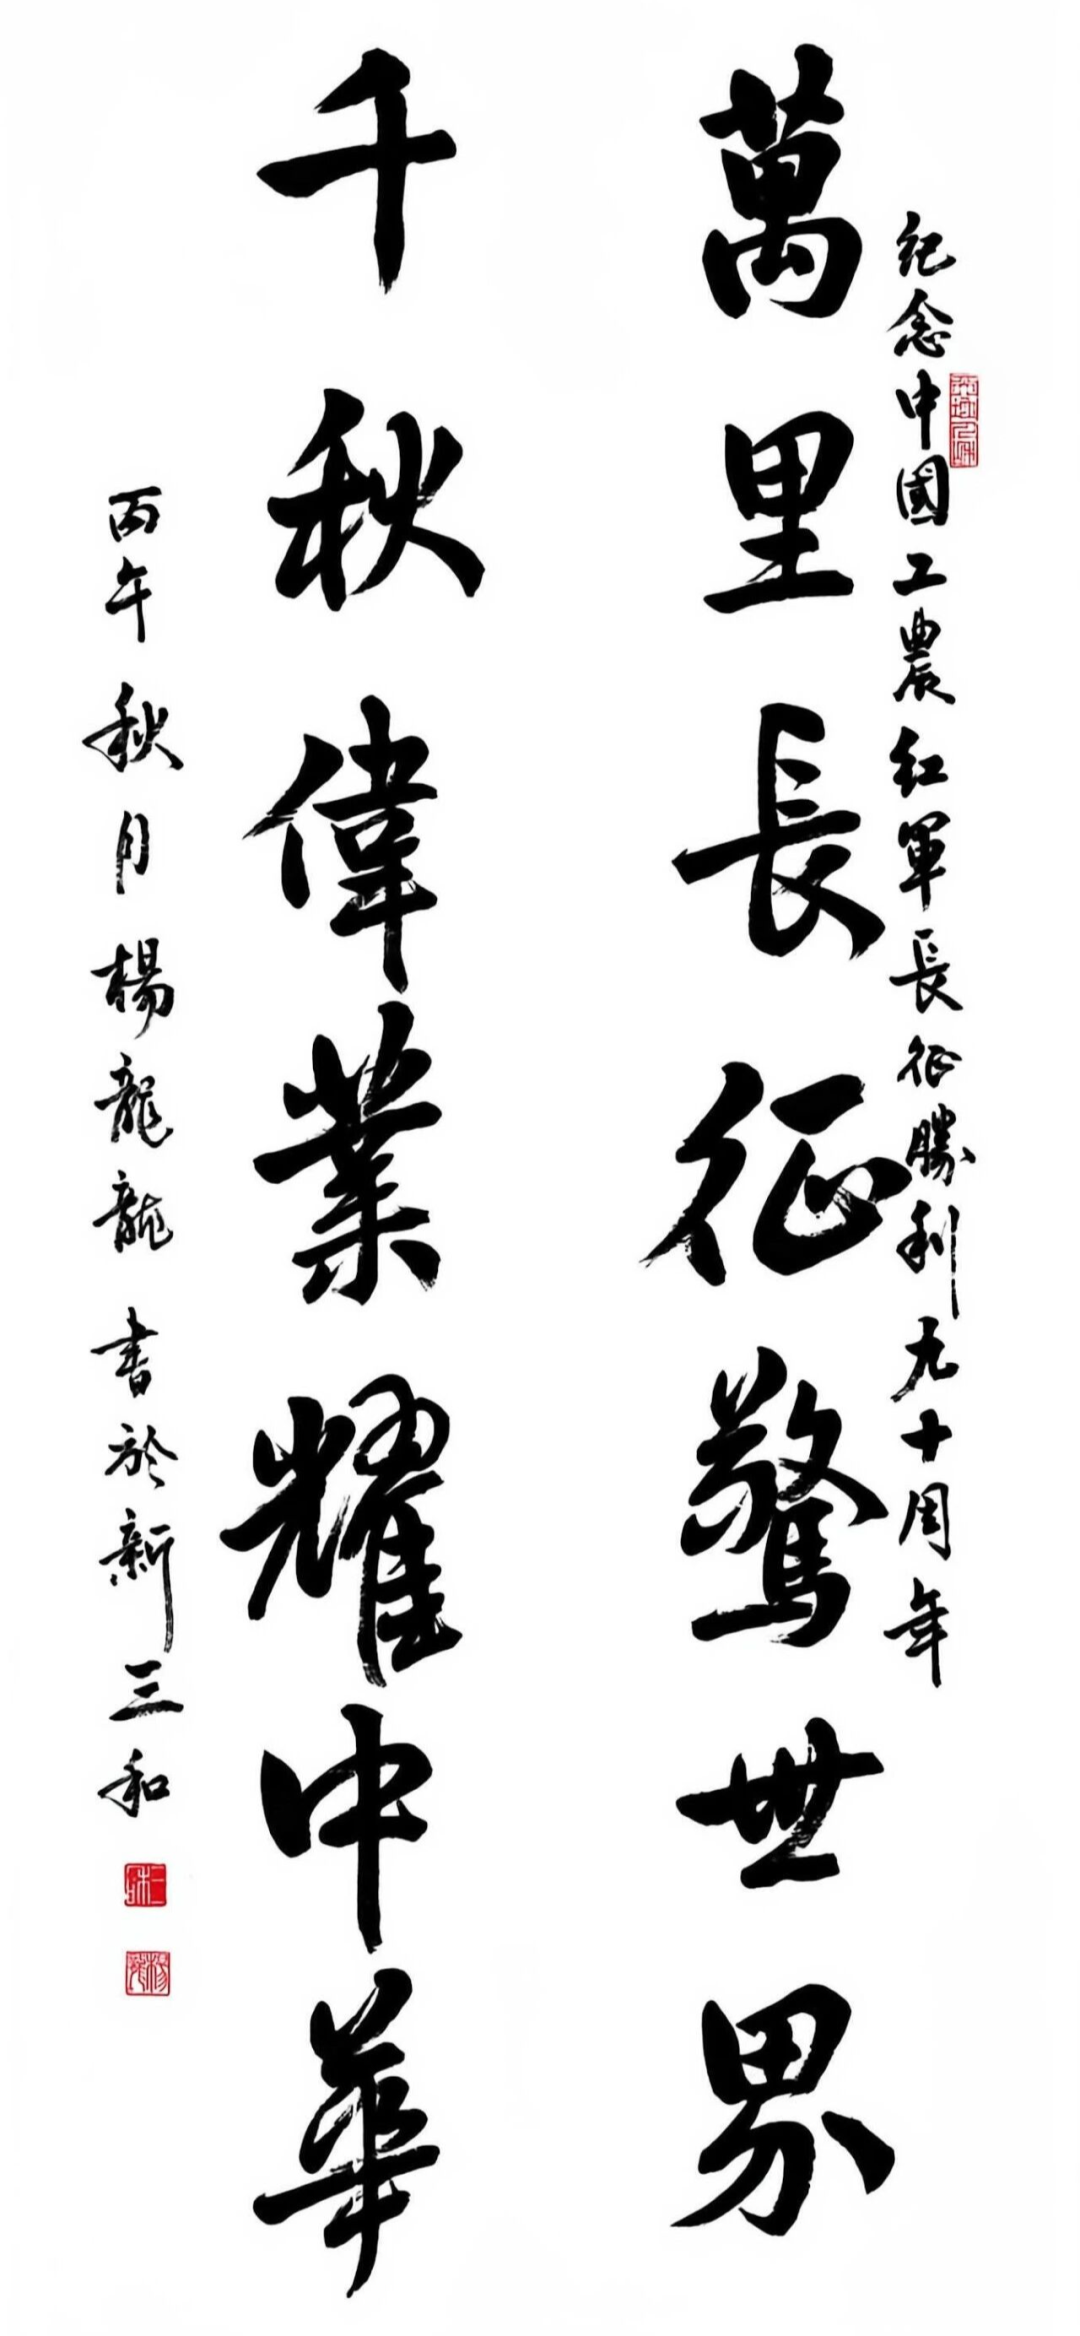 纪念中國工農红軍長征勝利九十周年
萬里長征驚世界
千秋偉業耀中華
丙午秋月楊龍龍書於新三和